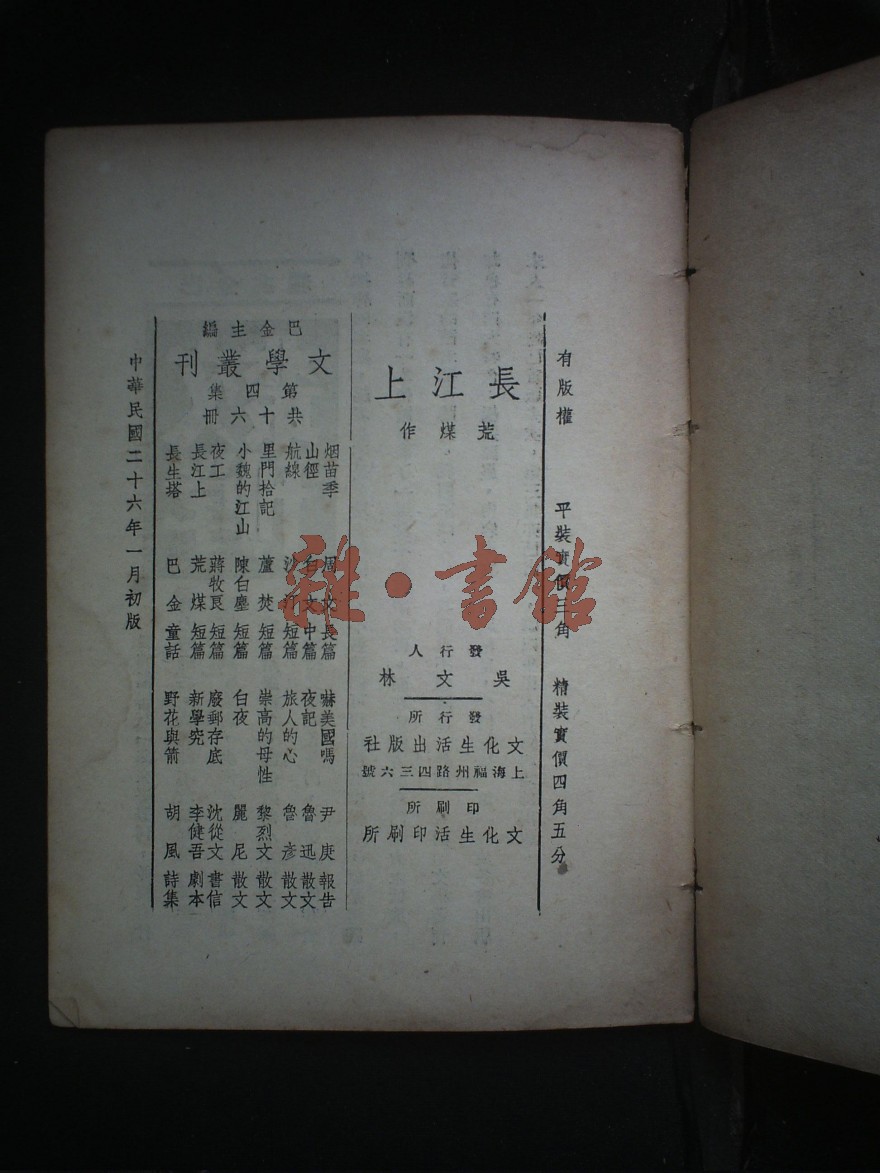 有版權 平裝實價三角 精裝實價四角五分
長江上
荒煤作
發行人
吳文林
發行所
文化生活出版社
上海福州路四三六號
印刷所
文化生活印刷所
巴金主編
文學叢刊
第四集
共十六冊
烟苗季 周文 長篇
山徑 白文 中篇
航線 沙汀 短篇
里門拾記 蘆焚 短篇
小魏的江山 陳白塵 短篇
夜工 蔣牧良 短篇
長江上 荒煤 短篇
長生塔 巴金 童話
嚇美國嗎 尹庚 報告
夜記 魯迅 散文
旅人的心 魯彥 散文
崇高的母性 黎烈文 散文
白夜 麗尼 散文
廢郵存底 沈從文 書信
新學究 李健吾 劇本
野花與箭 胡風 詩集
中華民國二十六年一月初版
雜·書館